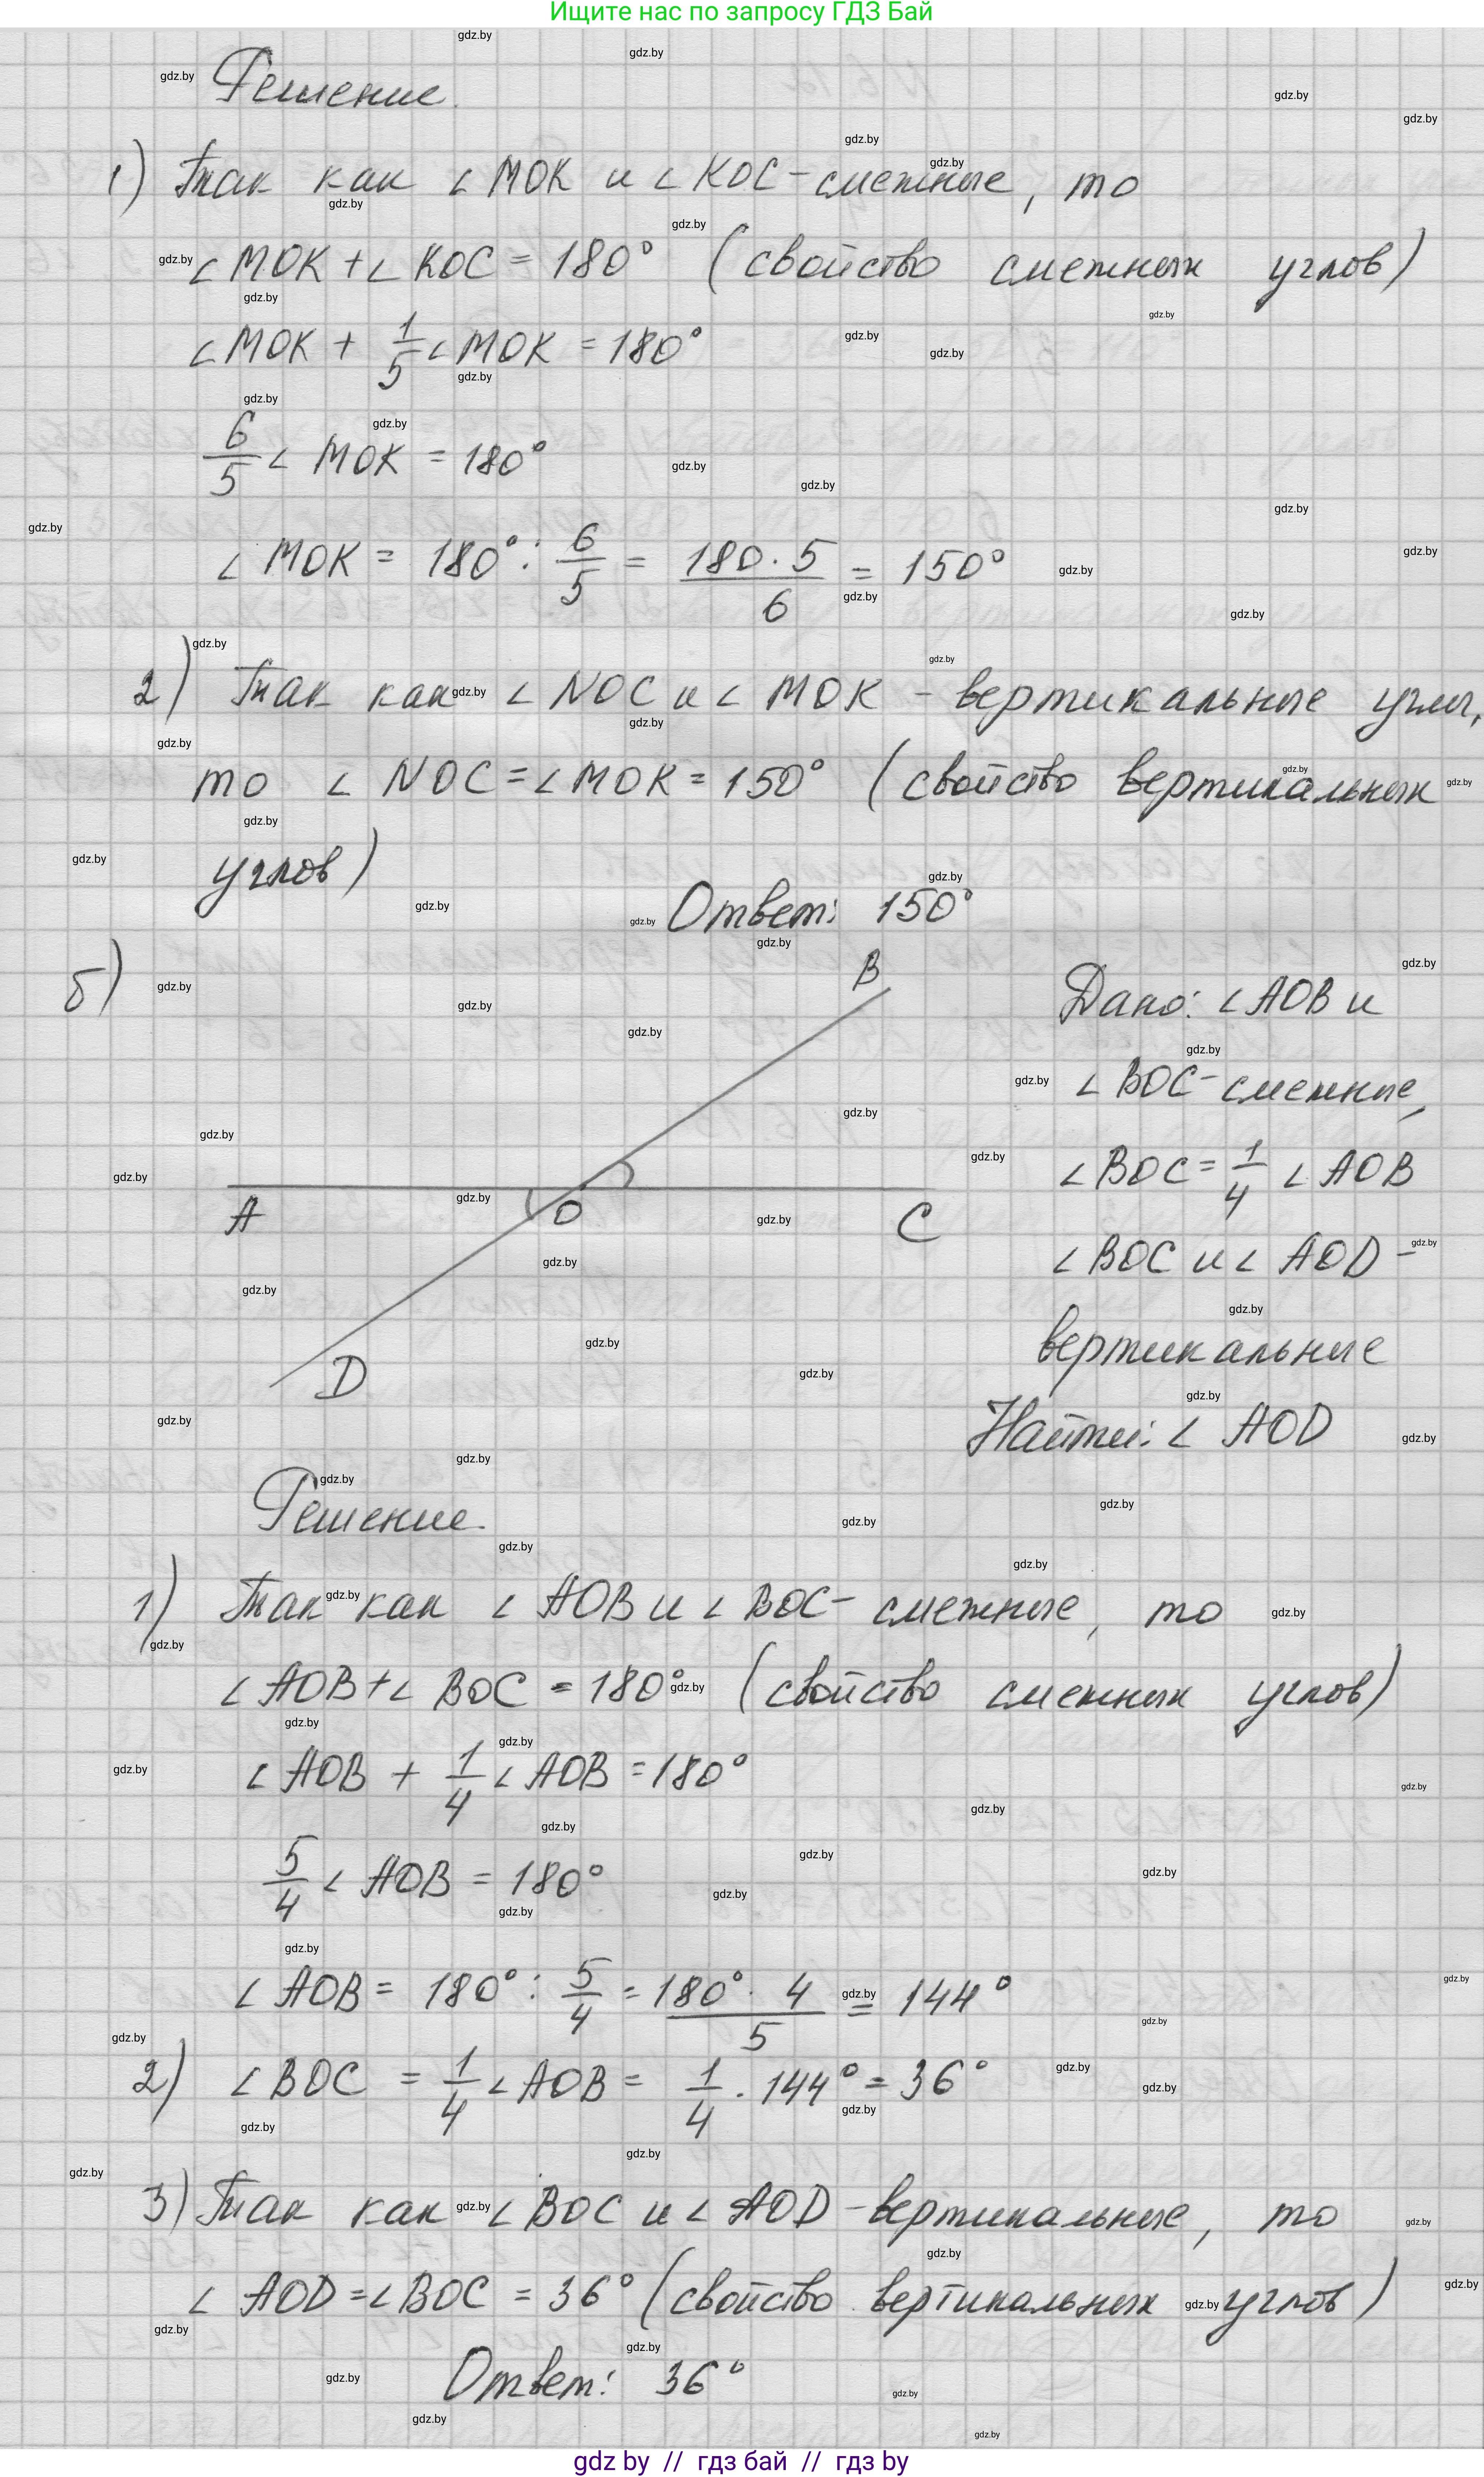 Ищите нас по запросу ГДЗ Бай
Решение.
1) Так как ∠MOK и ∠KOC - смежные, то
∠MOK + ∠KOC = 180° (свойство смежных углов)
∠MOK + 1/5 ∠MOK = 180°
6/5 ∠MOK = 180°
∠MOK = 180° : 6/5 = 180 · 5 / 6 = 150°
2) Так как ∠NOC и ∠MOK - вертикальные углы,
то ∠NOC = ∠MOK = 150° (свойство вертикальных
углов)
Ответ: 150°
б)
B
A
O
C
D
Дано: ∠AOB и
∠BOC - смежные,
∠BOC = 1/4 ∠AOB
∠BOC и ∠AOD -
вертикальные
Найти: ∠AOD
Решение.
1) Так как ∠AOB и ∠BOC - смежные, то
∠AOB + ∠BOC = 180° (свойство смежных углов)
∠AOB + 1/4 ∠AOB = 180°
5/4 ∠AOB = 180°
∠AOB = 180° : 5/4 = 180° · 4 / 5 = 144°
2) ∠BOC = 1/4 ∠AOB = 1/4 · 144° = 36°
3) Так как ∠BOC и ∠AOD - вертикальные, то
∠AOD = ∠BOC = 36° (свойство вертикальных углов)
Ответ: 36°
gdz by // гдз бай // гдз by